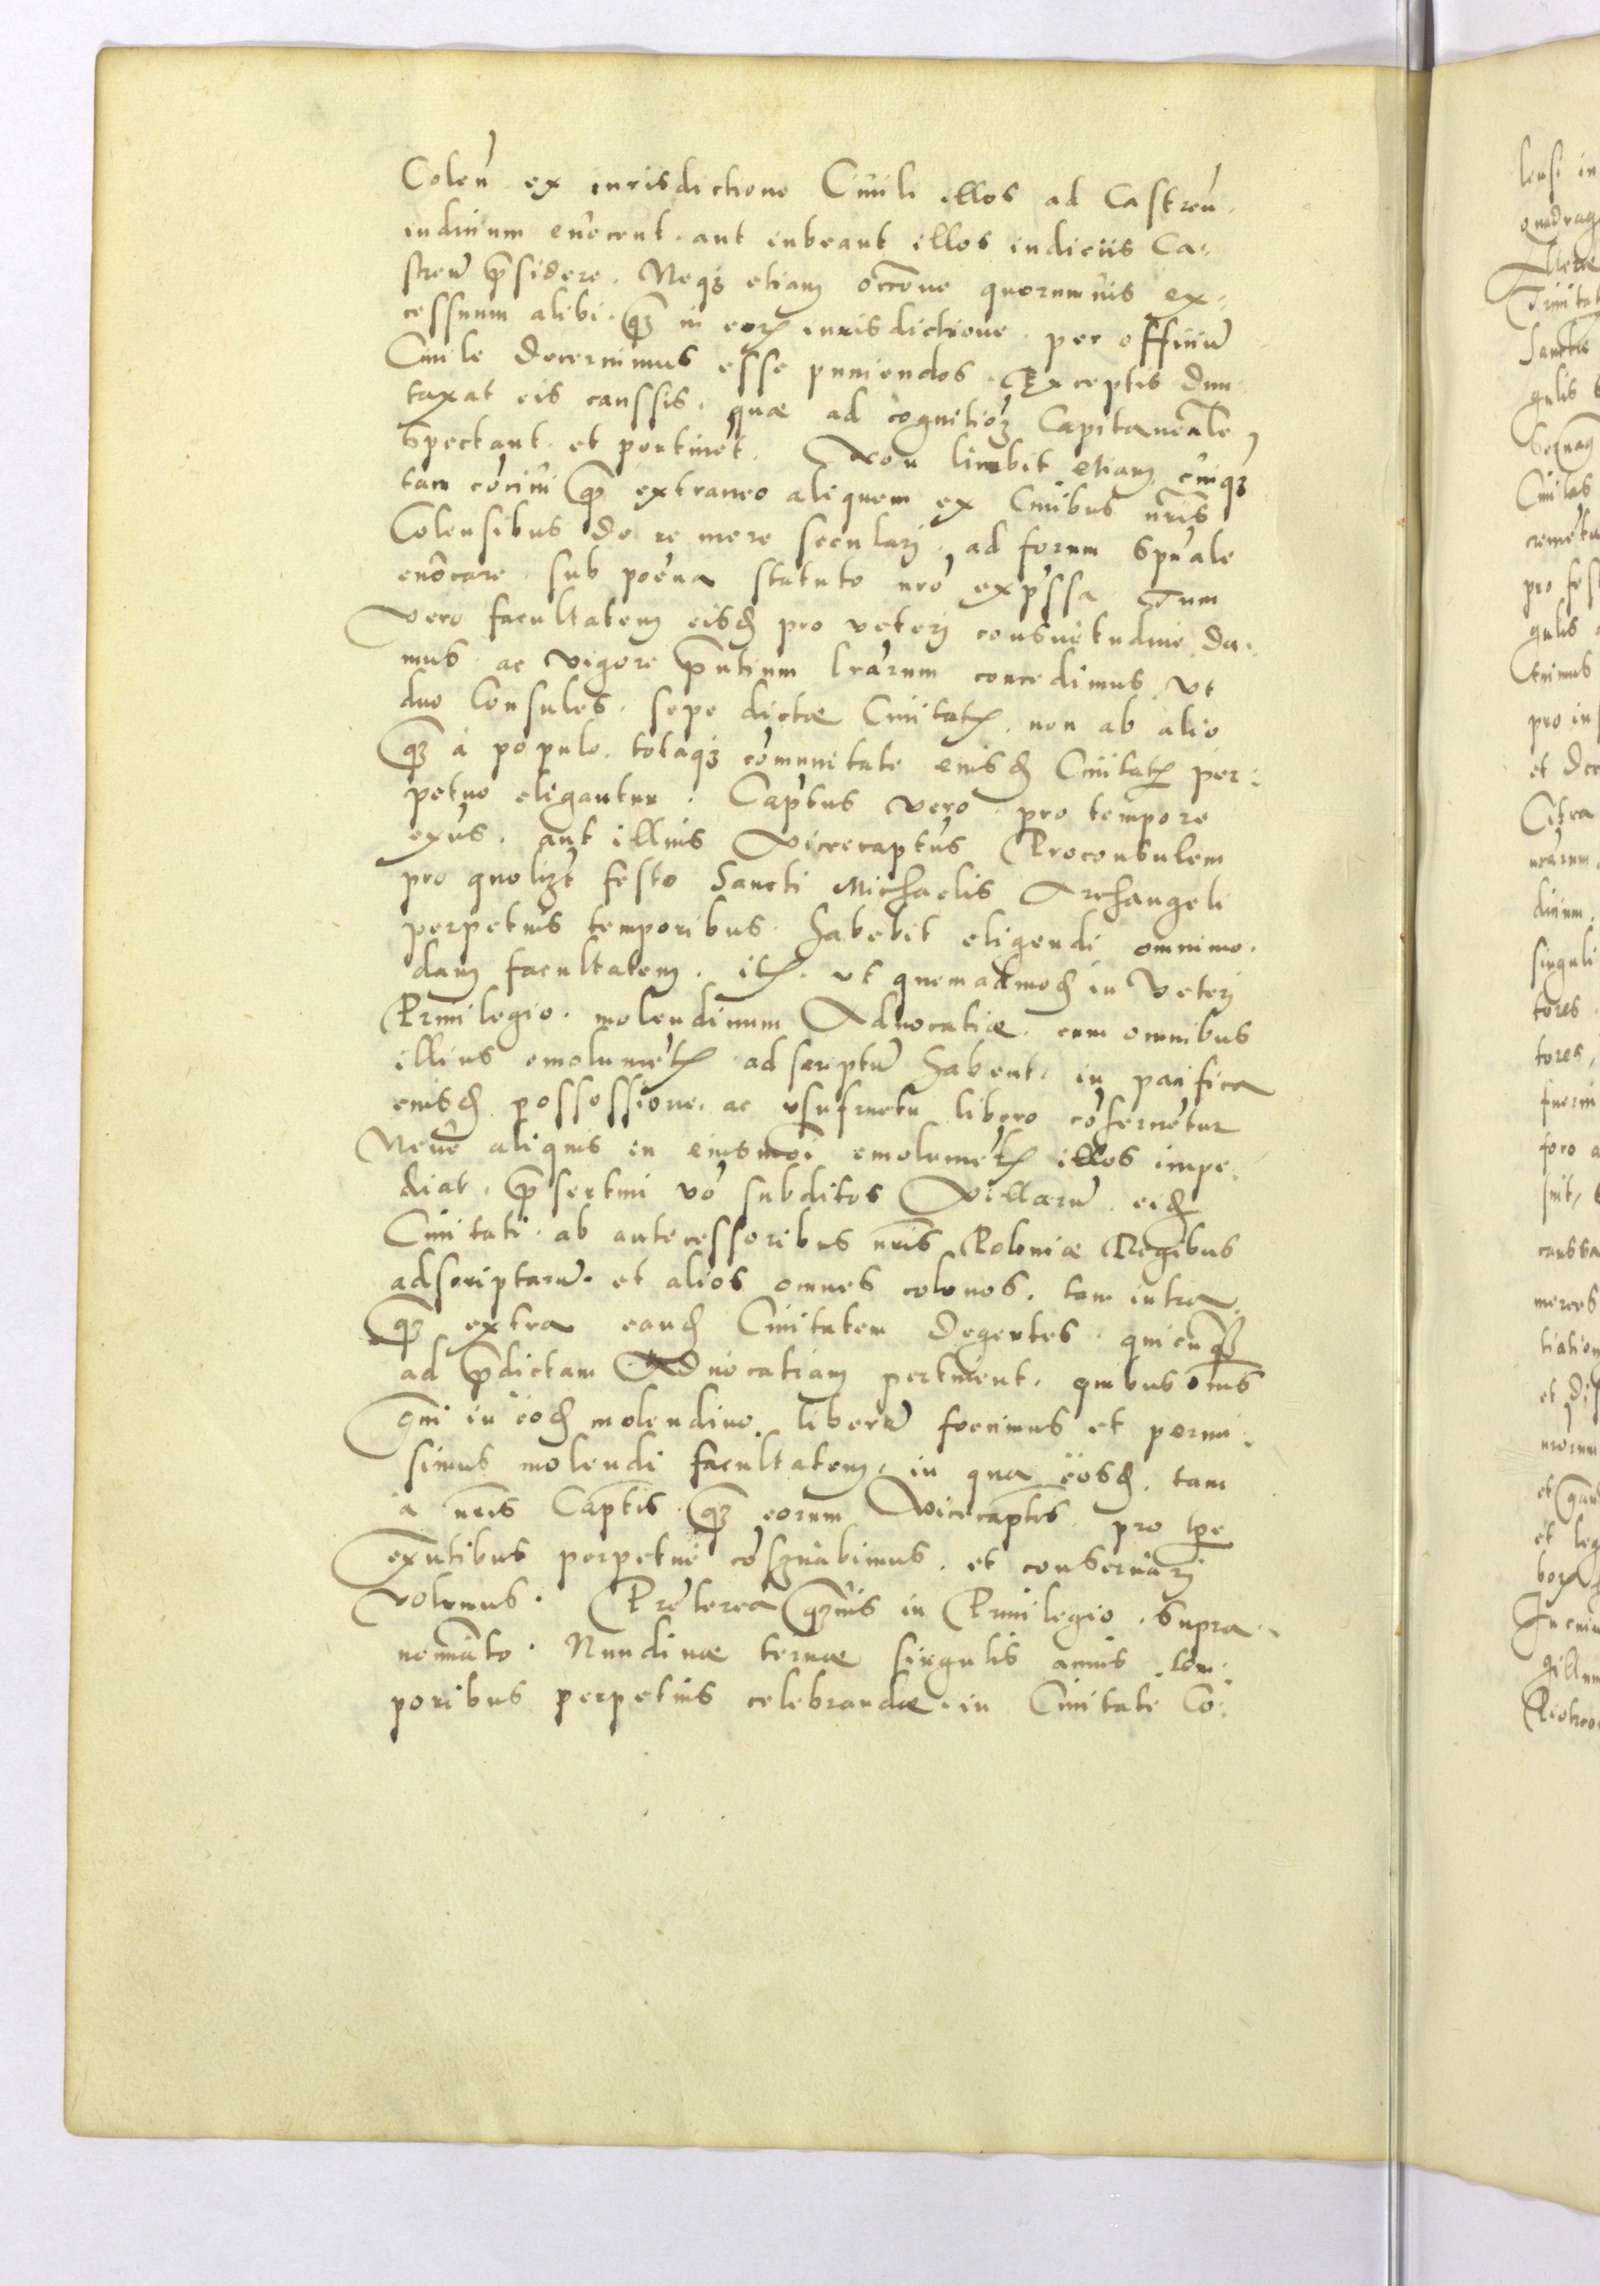 Coleñ ex iurisdictione Ciuili illos ad Castreñ
iudicium euocent. aut iubeant illos iudiciis Ca-
streñ p̃sidere. Neqȝ etiam occõne quorumuis ex-
cessuum alibi. qȝ in eoꝝ iurisdictione. per officiũ
Ciuile decernimus esse puniendos. Exceptis dun
taxat eis caussis. quæ ad cognitioȝ Capitaneale
spectant. et pertinẽt. Non licebit etiam cuiqȝ
tam cõciui qȝ extraneo aliquem ex Ciuibus nr̃is
Colensibus de re mere seculari, ad forum Spũale
euocare. sub poena statuto nr̃o exp̃ssa. Tum
vero facultatem eisđ pro veteri consuetudine da-
mus. ac vigore p̃ntium lr̃arum concedimus. vt
duo Consules. sepe dictæ Ciuitatꝭ. non ab alio
qȝ à populo. totaqȝ cõmunitate eiusđ Ciuitatꝭ per-
petuo eligantur. Capt̃us vero pro tempore
exñs. aut illius Vicecapt̃us Proconsulem
pro quolizt̃ festo Sancti Michaelis Archangeli
perpetuis temporibus habebit eligendi omnimo-
dam facultatem. itꝭ. vt quemadmođ in Veteri
Priuilegio. molendinum Aduocatiæ. cum omnibus
illius emolumẽtꝭ adscriptũ habent. in pacifica
eiusđ possessione. ac vsufructu libero cõseruẽtur
Neue aliquis in eiusmõi emolumẽtꝭ illos impe-
diat. p̃sertim võ subditos Villarũ. eiđ
Ciuitati. ab antecessoribus nr̃is Poloniæ Regibus
adscriptarũ. et alios omnes colonos. tam intra
qȝ extra eanđ Ciuitatem degentes. quicũqȝ
ad p̃dictam Aduocatiam pertinent. quibus om̃s
qui in eođ molendino liberũ fecimus et permi-
simus molendi facultatem. in qua eosđ. tam
à nr̃is Capt̃is. qȝ eorum Vicecapt̃is pro tp̃e
exñtibus perpetue cõseruabimus. et conseruari
volumus. Prẽterea qȝuis in Priuilegio. supra-
nomiãto. Nundinæ ternæ singulis annis tem-
poribus perpetuis celebrandæ. in Ciuitate Co-